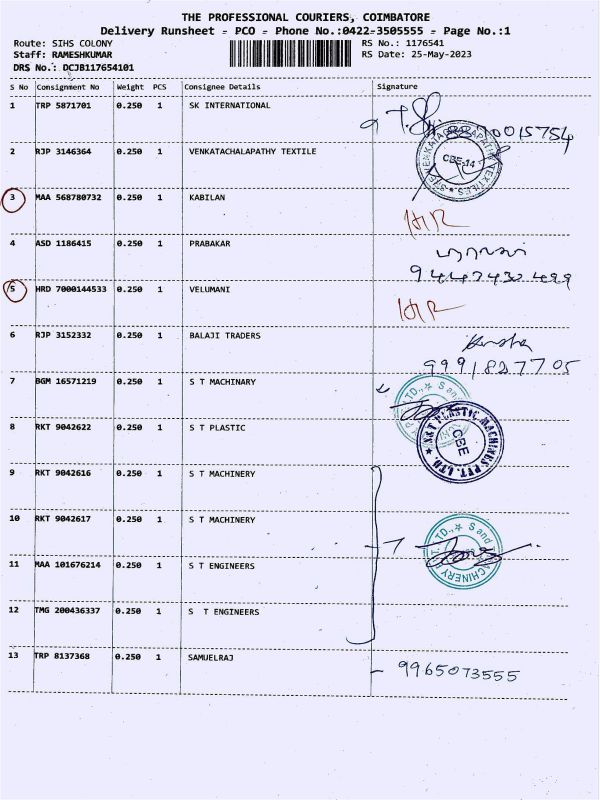 THE PROFESSIONAL COURIERS, COIMBATORE
Delivery Runsheet - PCO - Phone No.:0422-3505555 - Page No.:1
Route: SIHS COLONY RS No.: 1176541
Staff: RAMESHKUMAR RS Date: 25-May-2023
DRS No.: DCJB117654101
S No Consignment No Weight PCS Consignee Details Signature
1 TRP 5871701 0.250 1 SK INTERNATIONAL
2 RJP 3146364 0.250 1 VENKATACHALAPATHY TEXTILE
CBE-14
3 MAA 568780732 0.250 1 KABILAN
4 ASD 1186415 0.250 1 PRABAKAR
5 HRD 7000144533 0.250 1 VELUMANI
6 RJP 3152332 0.250 1 BALAJI TRADERS
9991827705
7 BGM 16571219 0.250 1 S T MACHINARY
8 RKT 9042622 0.250 1 S T PLASTIC
CBE
9 RKT 9042616 0.250 1 S T MACHINERY
10 RKT 9042617 0.250 1 S T MACHINERY
11 MAA 101676214 0.250 1 S T ENGINEERS
12 TMG 200436337 0.250 1 S T ENGINEERS
13 TRP 8137368 0.250 1 SAMUELRAJ
- 9965073555